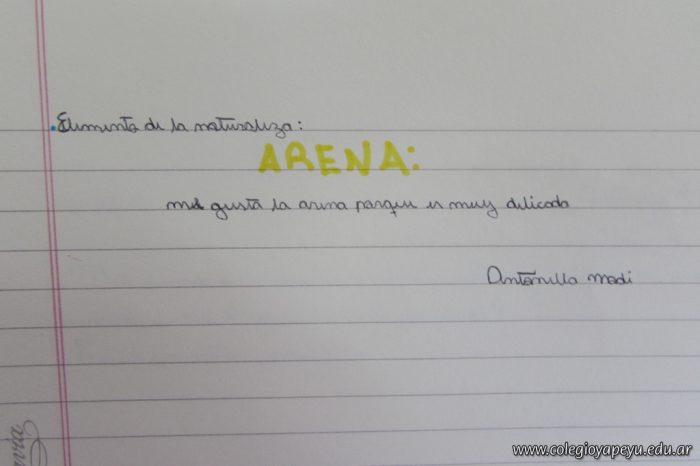 Elemento de la naturaleza:
ARENA:
me gusta la arena porque es muy delicada
Antonella
www.colegioyapeyu.edu.ar